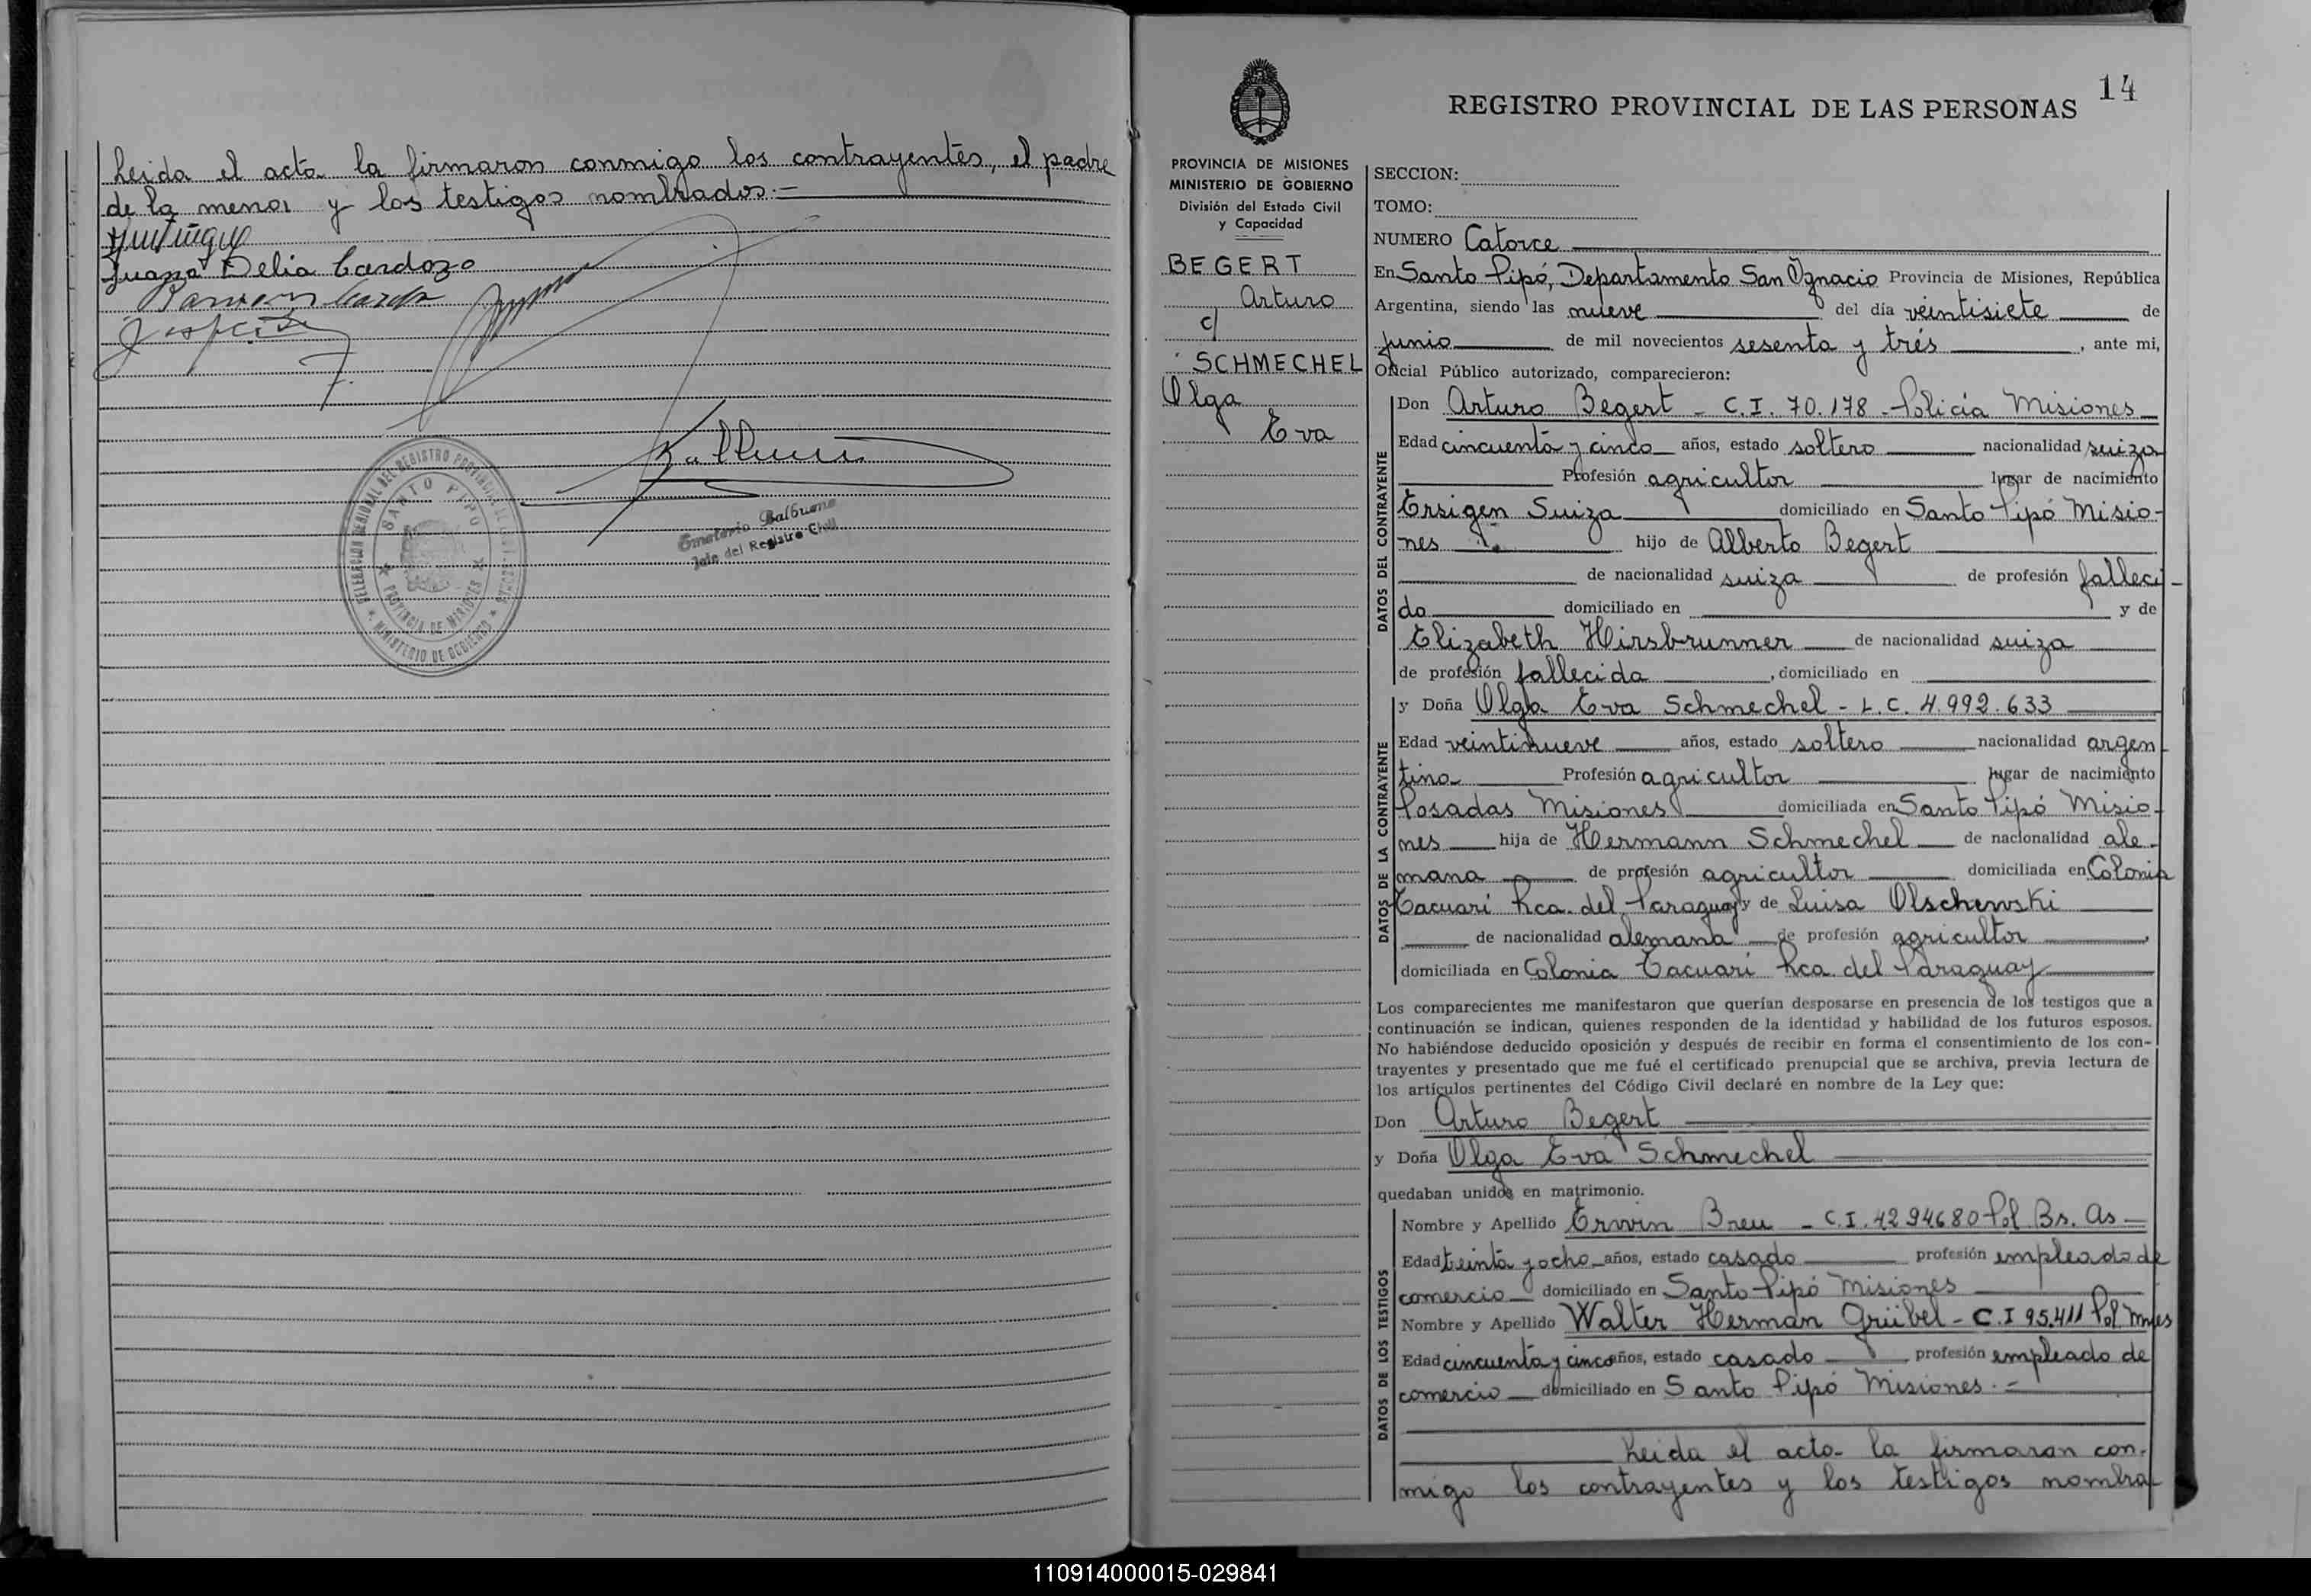 Leida el acta la firmaron conmigo los contrayentes, el padre
de la menor y los testigos nombrados.-
Juana Delia Cardozo
DELEGACION REGIONAL DEL REGISTRO PROVINCIAL DE LAS PERSONAS
SANTO PIPO
PROVINCIA DE MISIONES
MINISTERIO DE GOBIERNO
Emeterio Balbuena
Jefe del Registro Civil
14
REGISTRO PROVINCIAL DE LAS PERSONAS
PROVINCIA DE MISIONES
MINISTERIO DE GOBIERNO
División del Estado Civil
y Capacidad
BEGERT
Arturo
c/
SCHMECHEL
Olga
Eva
SECCION:
TOMO:
NUMERO Catorce
En Santo Pipó, Departamento San Ignacio Provincia de Misiones, República
Argentina, siendo las nueve del día veintisiete de
junio de mil novecientos sesenta y trés, ante mi,
Oficial Público autorizado, comparecieron:
DATOS DEL CONTRAYENTE
Don Arturo Begert - C.I. 70.178 - Policía Misiones
Edad cincuenta y cinco años, estado soltero nacionalidad suiza
Profesión agricultor lugar de nacimiento
Ersigen Suiza domiciliado en Santo Pipó Misio-
nes hijo de Alberto Begert
de nacionalidad suiza de profesión falleci-
do domiciliado en y de
Elizabeth Hirsbrunner de nacionalidad suiza
de profesión fallecida, domiciliado en
DATOS DE LA CONTRAYENTE
y Doña Olga Eva Schmechel - L.C. 4.992.633
Edad veintinueve años, estado soltero nacionalidad argen-
tina Profesión agricultor lugar de nacimiento
Posadas Misiones domiciliada en Santo Pipó Misio-
nes hija de Hermann Schmechel de nacionalidad ale-
mana de profesión agricultor domiciliada en Colonia
Tacuarí Rca. del Paraguay y de Luisa Olschewski
de nacionalidad alemana de profesión agricultor,
domiciliada en Colonia Tacuarí Rca. del Paraguay
Los comparecientes me manifestaron que querían desposarse en presencia de los testigos que a
continuación se indican, quienes responden de la identidad y habilidad de los futuros esposos.
No habiéndose deducido oposición y después de recibir en forma el consentimiento de los con-
trayentes y presentado que me fué el certificado prenupcial que se archiva, previa lectura de
los artículos pertinentes del Código Civil declaré en nombre de la Ley que:
Don Arturo Begert
y Doña Olga Eva Schmechel
quedaban unidos en matrimonio.
DATOS DE LOS TESTIGOS
Nombre y Apellido Erwin Breu - C.I. 4294680 Pol. Bs. As
Edad treinta y ocho años, estado casado profesión empleado de
comercio domiciliado en Santo Pipó Misiones
Nombre y Apellido Walter Herman Grübel - C.I 95.411 Pol. Mnes
Edad cincuenta y cinco años, estado casado profesión empleado de
comercio domiciliado en Santo Pipó Misiones.-
Leida el acta la firmaran con-
migo los contrayentes y los testigos nombra-
110914000015-029841